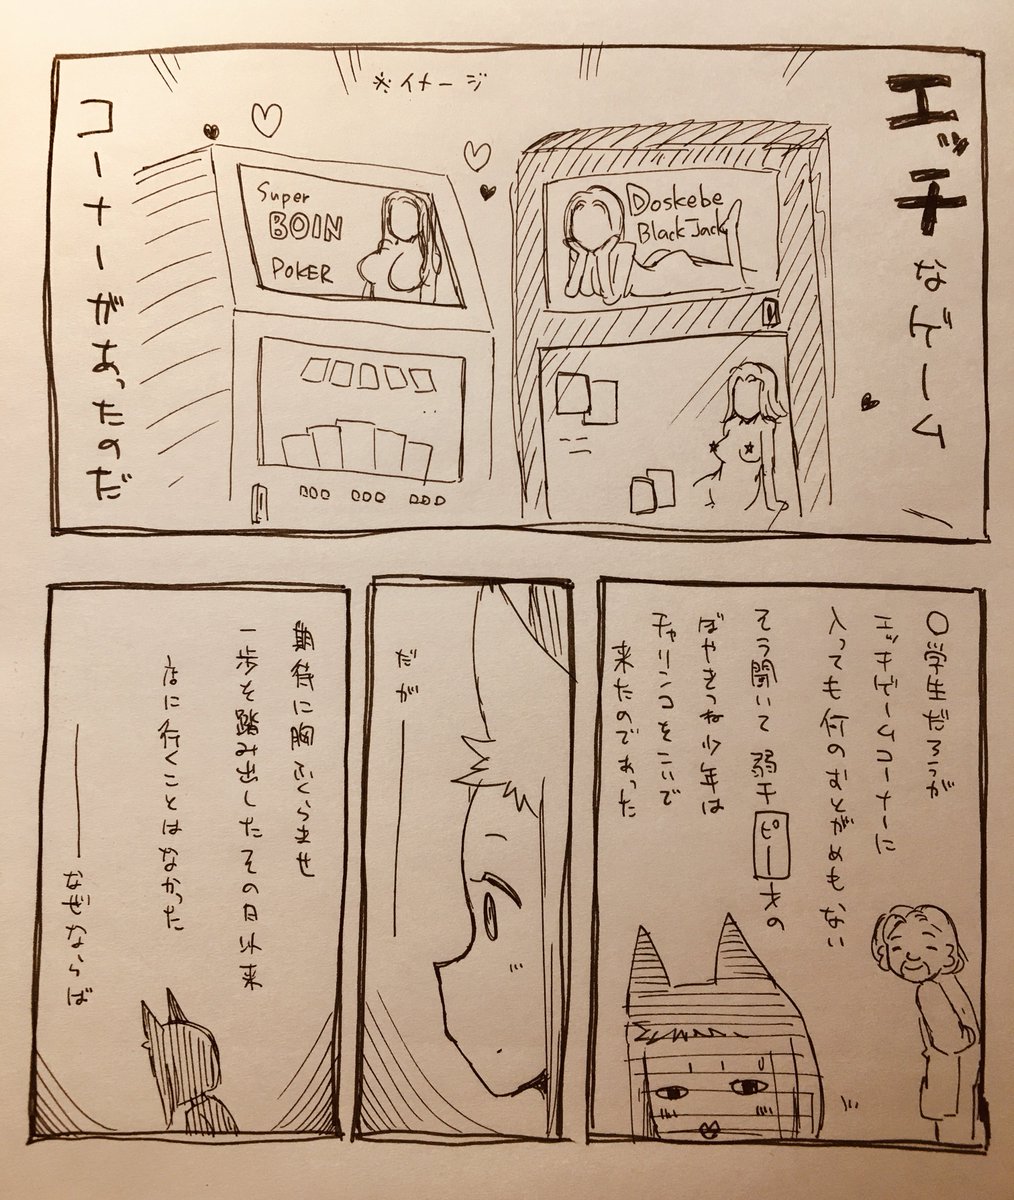 エッチなゲーム
※イメージ
Doskebe
Black Jack
Super
BOIN
POKER
コーナーがあったのだ
〇学生だろうが
エッチゲームコーナーに
入っても何のおとがめもない
そう聞いて弱干ピー才の
ばやきつね少年は
チャリンコをこいで
来たのであった
だが――
期待に胸ふくらませ
一歩を踏み出したその日以来
店に行くことはなかった
――なぜならば